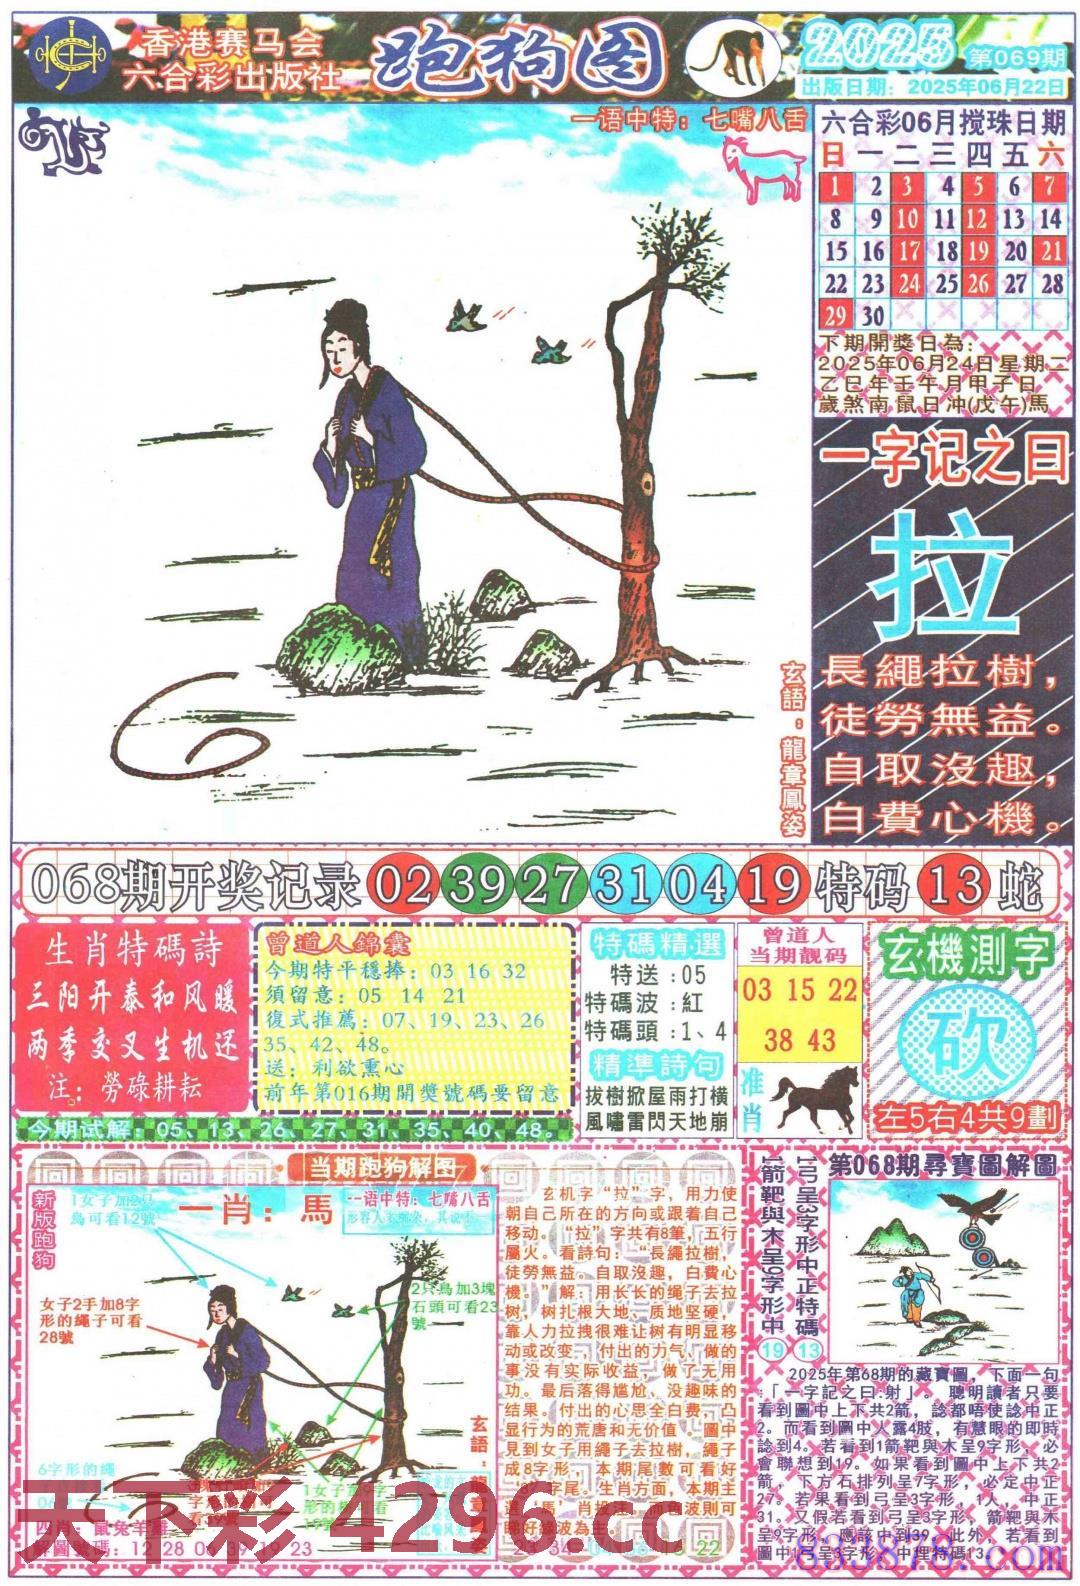 香港赛马会
六合彩出版社
跑狗图
2025 第069期
出版日期：2025年06月22日
一语中特：七嘴八舌
六合彩06月搅珠日期
日 一 二 三 四 五 六
1 2 3 4 5 6 7
8 9 10 11 12 13 14
15 16 17 18 19 20 21
22 23 24 25 26 27 28
29 30
下期開獎日為：
2025年06月24日星期二
乙巳年壬午月甲子日
歲煞南鼠日冲(戊午)馬
一字记之曰
拉
長繩拉樹，
徒勞無益。
自取沒趣，
白費心機。
玄語：龍章鳳姿
068期开奖记录 02 39 27 31 04 19 特码 13 蛇
生肖特碼詩
三阳开泰和风暖
两季交叉生机还
注：勞碌耕耘
曾道人錦囊
今期特平穩捧：03 16 32
須留意：05 14 21
復式推薦：07、19、23、26
35、42、48。
送：利欲熏心
前年第016期開獎號碼要留意
今期试解：05、13、26、27、31、35、40、48。
特碼精選
特送：05
特碼波：紅
特碼頭：1、4
精準詩句
拔樹掀屋雨打橫
風嘯雷閃天地崩
曾道人
当期靓码
03 15 22
38 43
准肖
玄機測字
砍
左5右4共9劃
当期跑狗解图
新版跑狗
1女子加2只
鳥可看12號
一肖：馬
一语中特：七嘴八舌
女子2手加8字
形的繩子可看
28號
2只鳥加3塊
石頭可看23
號
6字形的繩
四肖：鼠兔羊雞
解圖號碼：12 28 06 39 19 23
玄机字“拉”字，用力使
朝自己所在的方向或跟着自己
移动。“拉”字共有8筆，五行
屬火。看詩句：“長繩拉樹，
徒勞無益。自取沒趣，白費心
機。”解：用长长的绳子去拉
树，树扎根大地、质地坚硬，
靠人力拉拽很难让树有明显移
动或改变，付出的力气、做的
事没有实际收益，做了无用
功。最后落得尴尬、没趣味的
结果。付出的心思全白费，凸
显行为的荒唐和无价值。圖中
見到女子用繩子去拉樹，繩子
成8字形。本期尾數可看好
1箭靶與木呈9字形中19
1弓呈3字形中正特碼13
第068期尋寶圖解圖
2025年第68期的藏寶圖，下面一句
「一字記之曰：射」。聰明讀者只要
看到圖中上下共2箭，諗都唔使諗中正
2。而看到圖中火露4股，有慧眼的即時
諗到4。若看到1箭靶與木呈9字形，必
會聯想到19。如果看到圖中上下共2
箭，下方石排列呈7字形，必定中正
27。若果看到弓呈3字形，1人，中正
31。又假若看到弓呈3字形，箭靶與木
呈9字形，應該中到39。此外，若看到
圖中1弓呈3字形，中埋特碼13。
天下彩 4296.cc